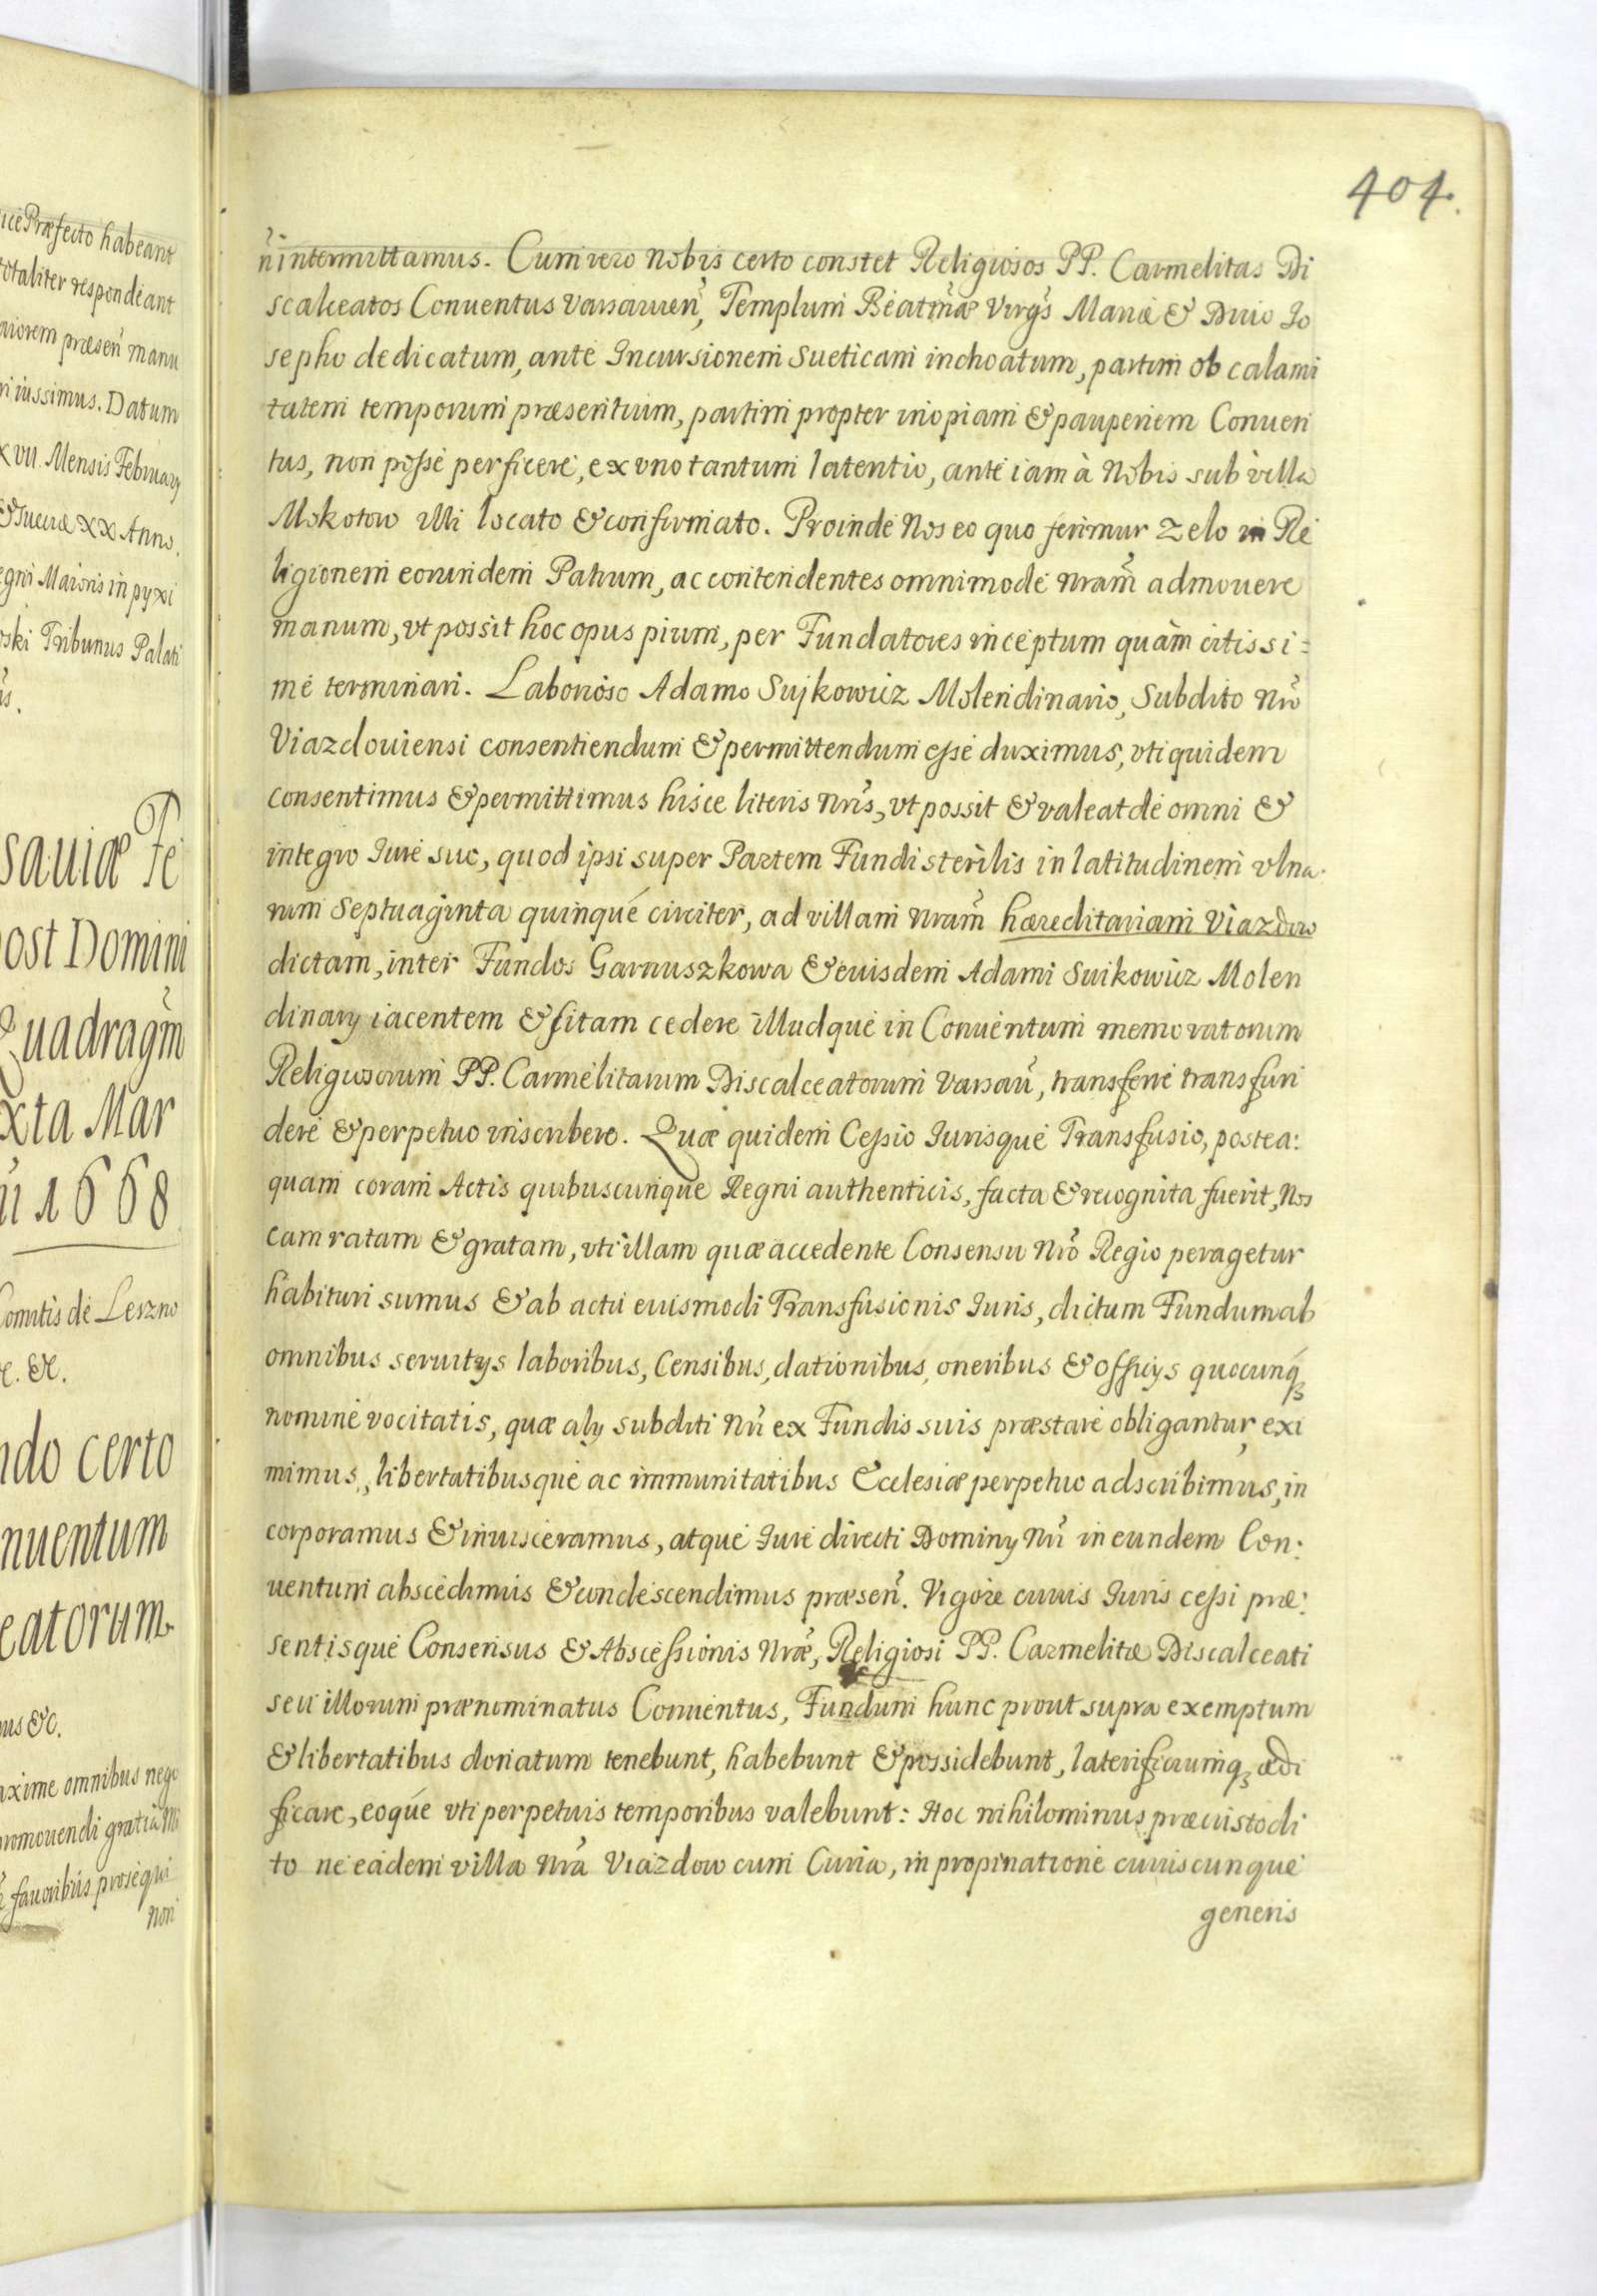 icePræfecto habeant
totaliter respondeant
aiorem præsen̄ manu
ri iussimus. Datum
XVII. Mensis Februarÿ
& Sueciæ XX Anno.
egni Maioris in pyxi
oski Tribunus Palati
sauiæ Fe
ost Domini
Quadragm̄
xta Mar
1668
Comitis de Leszno
&.
ndo certo
nuentum
eatorum
us &c.
axime omnibus nego
romouendi gratia
fauoribus prosequi
non
404.
n̄ intermittamus. Cum vero Nobis certo constet Religiosos PP. Carmelitas Di
scalceatos Conuentus Varsauien̄, Templum Beatm̄æ Virgs̄ Mariæ & Diuo Jo
sepho dedicatum, ante Incursionem Sueticam inchoatum, partim ob calami
tatem temporum præsentium, partim propter inopiam & pauperiem Conuen
tus, non posse perficere, ex vno tantum latentio, ante iam à Nobis sub villa
Mokotow illi locato & confirmato. Proinde Nos eo quo ferimur Zelo in Re
ligionem eorundem Patrum, ac contendentes omnimode nram̄ admouere
manum, vt possit hoc opus pium, per Fundatores inceptum quàm citissi=
me terminari. Laborioso Adamo Sujkowicz Molendinario, Subdito Nrō
Viazdouiensi consentiendum & permittendum esse duximus, vti quidem
consentimus & permittimus hisce literis Nrīs, vt possit & valeat de omni &
integro Jure suo, quod ipsi super Partem Fundi sterilis in latitudinem vlna.
rum Septuaginta quinque circiter, ad villam nram̄ hæreditariam Viazdow
dictam, inter Fundos Garnuszkowa & eiusdem Adami Suikowicz Molen
dinarÿ iacentem & sitam cedere illudque in Conuentum memoratorum
Religiosorum PP. Carmelitarum Discalceatorum Varsaū, transferre transfun
dere & perpetuo inscribere. Quæ quidem Cessio Jurisque Transfusio, postea:
quam coram Actis quibuscunque Regni authenticis, facta & recognita fuerit, Nos
eam ratam & gratam, vti illam quæ accedente Consensu Nrō Regio peragetur
habituri sumus & ab actu eiusmodi Transfusionis Juris, dictum Fundum ab
omnibus seruitÿs laboribus, Censibus, dationibus, oneribus & officÿs quocunq̨
nomine vocitatis, quæ alÿ subditi Nrī ex Fundis suis præstare obligantur, exi
mimus, libertatibusque ac immunitatibus Ecclesiæ perpetuo adscribimus, in
corporamus & inuisceramus, atque Jure directi Dominÿ Nrī in eundem Con:
uentum abscedimus & condescendimus præsen̄. Vigore cuius Juris cessi præ:
sentisque Consensus & Abscessionis Nrǣ, Religiosi PP. Carmelitæ Discalceati
seu illorum prænominatus Conuentus, Fundum hunc prout supra exemptum
& libertatibus donatum tenebunt, habebunt & possidebunt, laterificiumq̨ ædi
ficare, eoque vti perpetuis temporibus valebunt: Hoc nihilominus præcustodi
to ne eadem villa Nrā Viazdow cum Curia, in propinatione cuiuscunque
generis